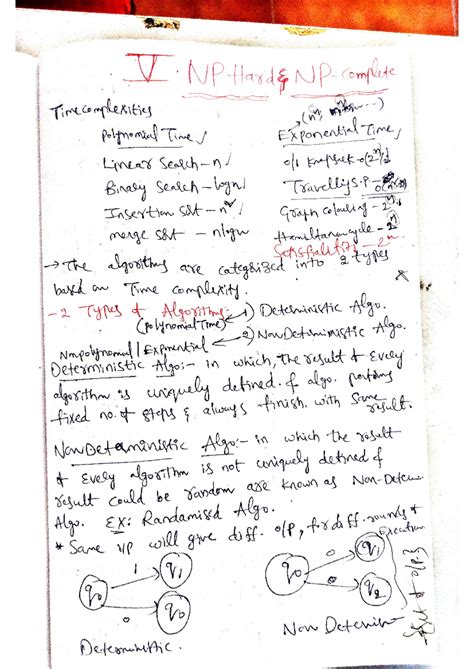 V. NP-Hard & NP-complete
Time complexities
Polynomial Time
Linear Search - n
Binary Search - logn
Insertion Sort - n²
merge sort - nlogn
Exponential Time
0/1 Knapsack - O(2ⁿ/²)
Travelling S.P -
Graph Colouring - 2ⁿ
Hamiltonian cycle - 2ⁿ
- 2ⁿ
→ The algorithms are categorized into 2 types
based on Time complexity.
- 2 Types of Algorithms:
(Polynomial Time) ← 1) Deterministic Algo.
Nonpolynomial / Exponential ← 2) Non Deterministic Algo.
Deterministic Algo:- in which, the result of Every
algorithm is uniquely defined. & algo. performs
fixed no. of steps & always finish with Same
result.
Non Deterministic Algo:- in which the result
of Every algorithm is not uniquely defined &
result could be random are known as Non-Deter
Algo. EX: Randomised Algo.
* Same i/p will give diff. o/p, for diff. rounds of
Execution
q0 1 q1
0 q0
Deterministic.
q0 0 q1
0 q2
Non Determin